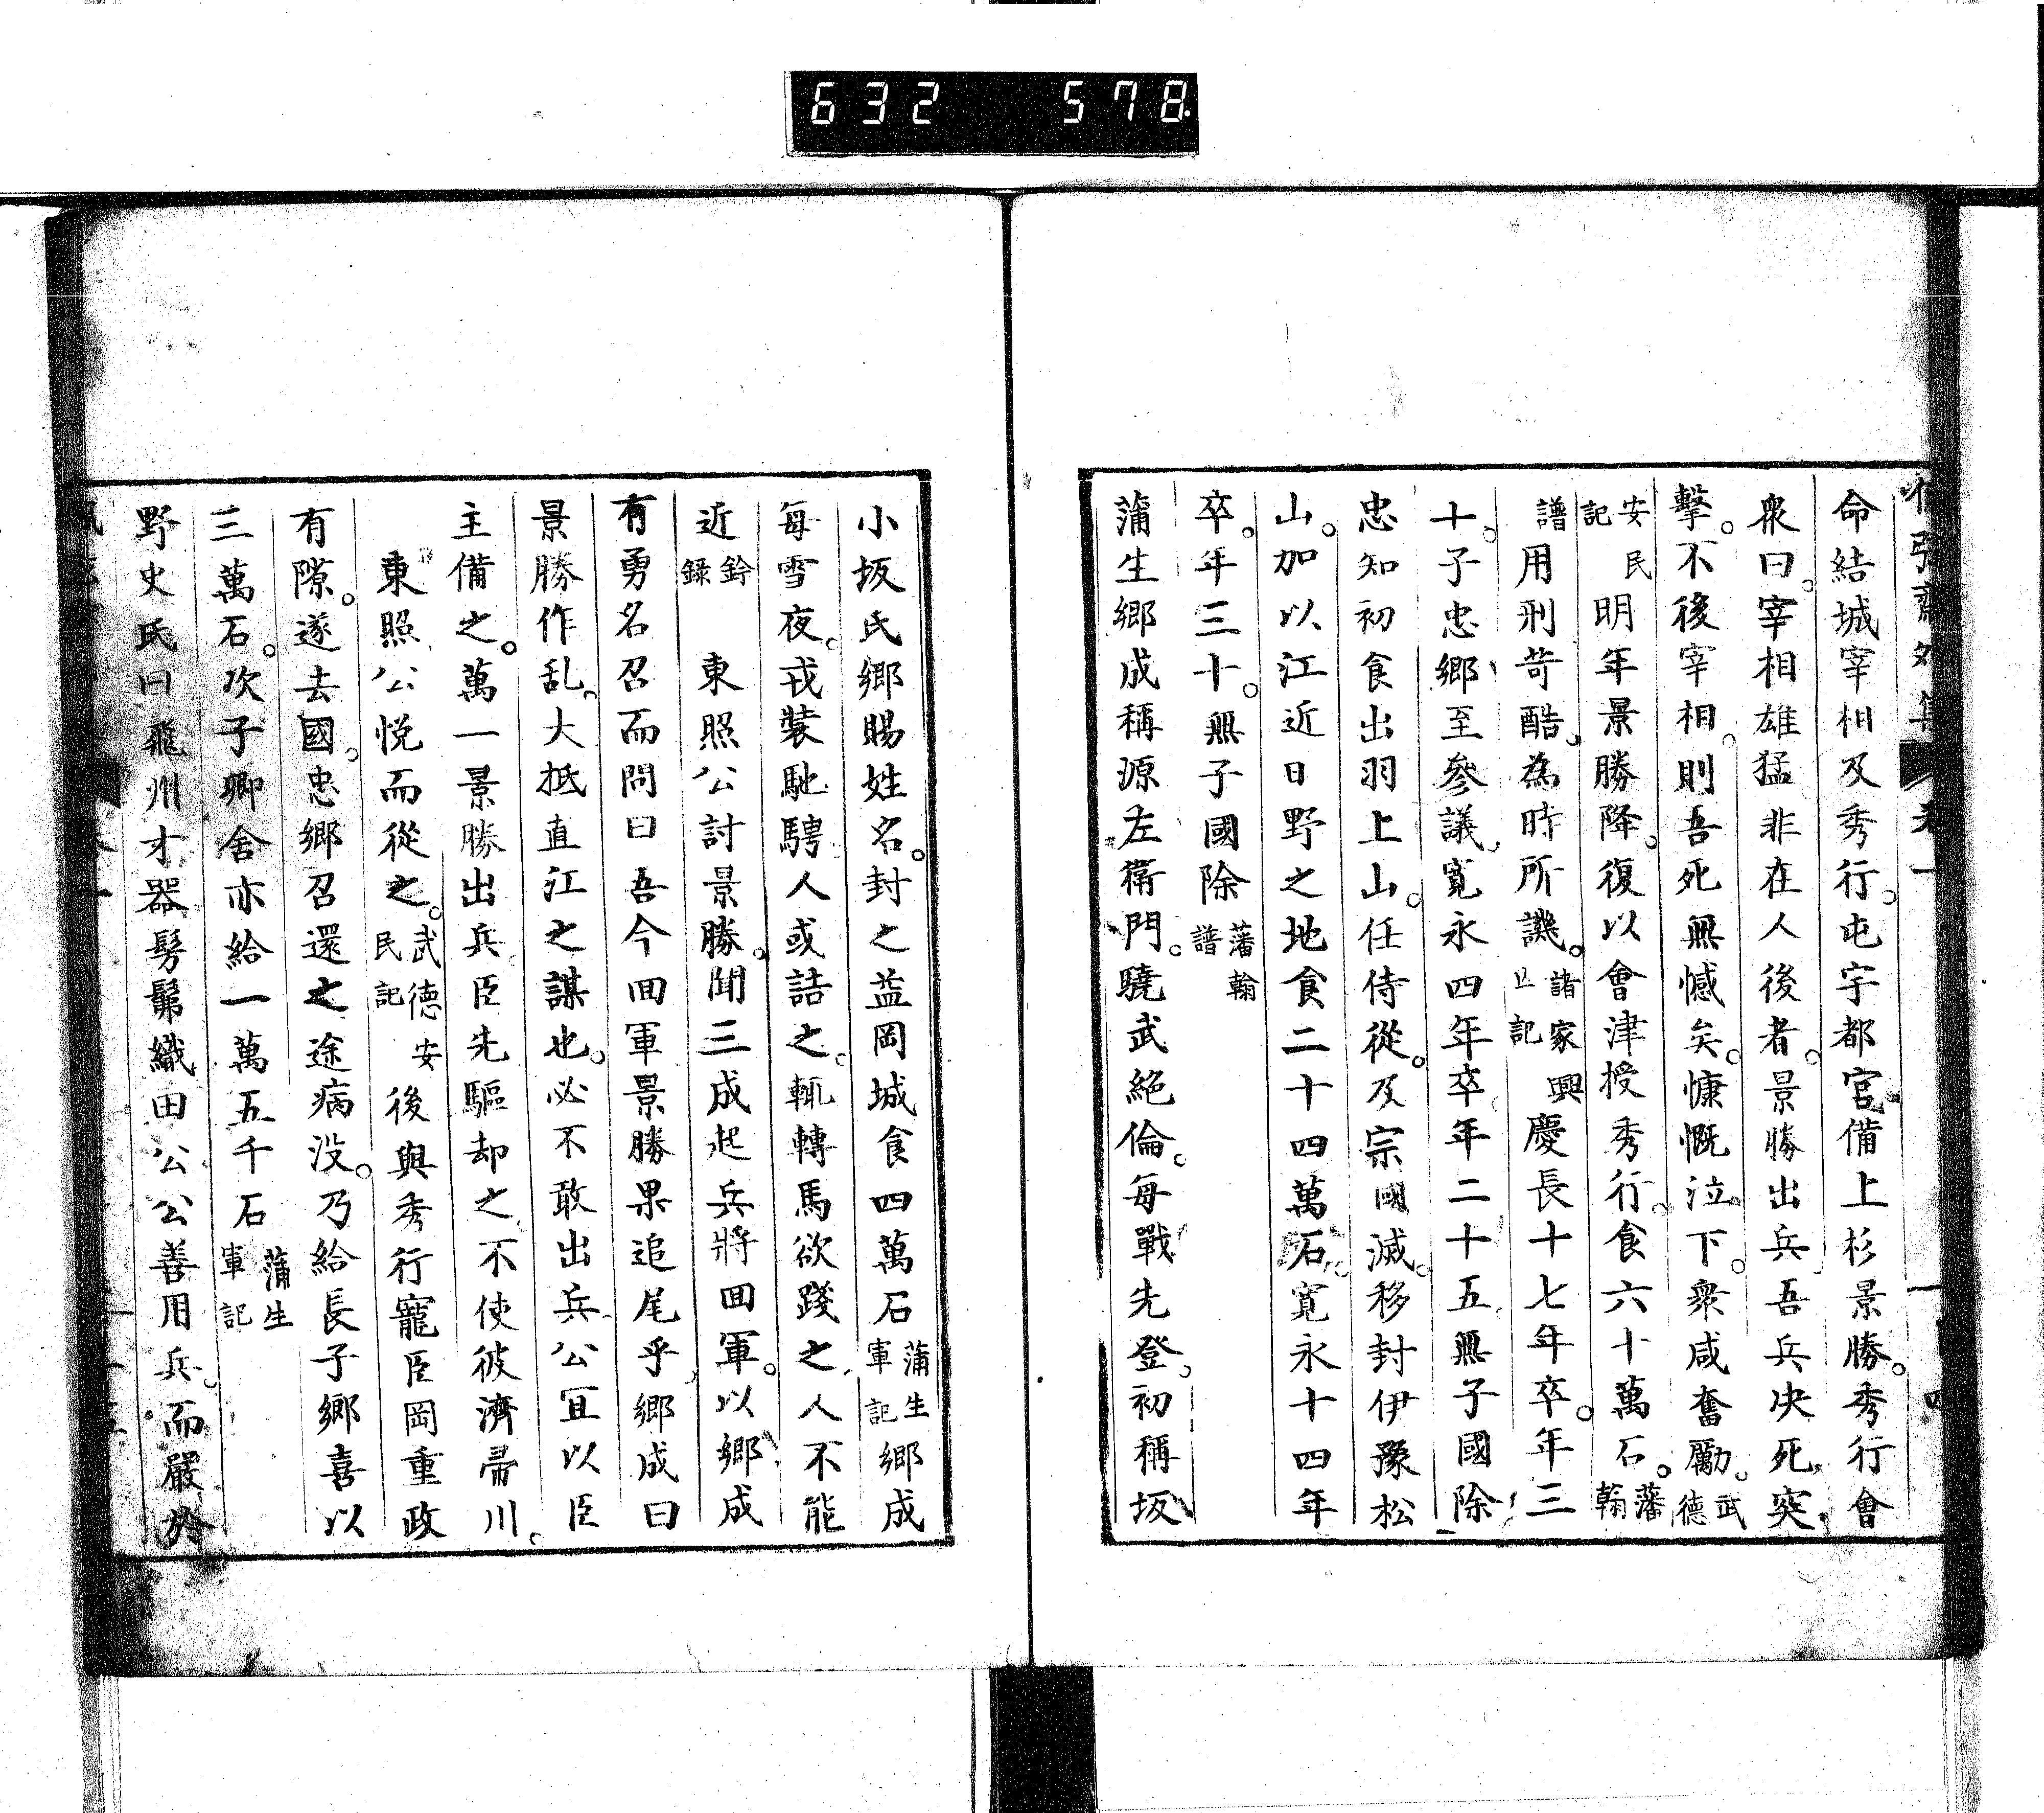 632 578
命結城宰相及秀行。屯宇都宮備上杉景勝。秀行會
衆曰。宰相雄猛非在人後者。景勝出兵吾兵決死突
擊。不後宰相。則吾死無憾矣。慷慨泣下。衆咸奮勵。武德
安民記明年景勝降。復以會津授秀行。食六十萬石。藩翰
譜用刑苛酷。為時所譏。諸家興亡記慶長十七年卒。年三
十。子忠鄉至參議。寛永四年卒年二十五無子國除
忠知初食出羽上山。任侍從。及宗國滅。移封伊豫松
山。加以江近日野之地食二十四萬石。寛永十四年
卒。年三十。無子國除藩翰譜
蒲生鄉成稱源左衛門。驍武絶倫。每戰先登。初稱坂
小坂氏鄉賜姓名。封之益岡城食四萬石蒲生軍記鄉成
每雪夜。戎裝馳騁人或詰之。輒轉馬欲踐之人不能
近鈴錄東照公討景勝。聞三成起兵將囬軍。以鄉成
有勇名召而問曰吾今囬軍景勝果追尾乎鄉成曰
景勝作乱。大抵直江之謀也。必不敢出兵。公宜以臣
主備之。萬一景勝出兵臣先驅却之不使彼濟帚川。
東照公悦而從之。武德安民記後與秀行寵臣岡重政
有隙。遂去國。忠鄉召還之途病没。乃給長子鄉喜以
三萬石。次子卿舍亦給一萬五千石蒲生軍記
野史氏曰飛州才器髣髴織田公公善用兵。而嚴於